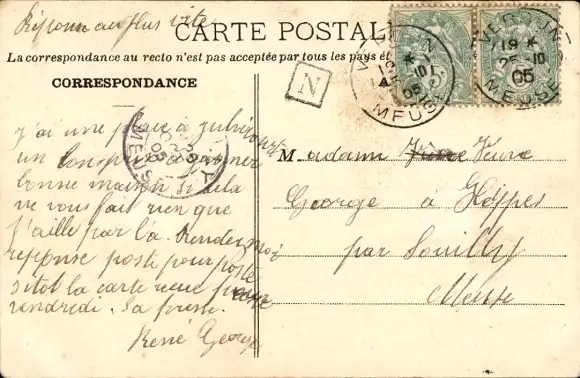 Réponse au plus vite
CARTE POSTALE
La correspondance au recto n'est pas acceptée par tous les pays
CORRESPONDANCE
N
VERDUN
19
25 - 10
05
MEUSE
J'ai une place à
un bon prix à gagner
bonne maison si cela
ne vous fait rien que
j'aille par là. Rendez moi
reponse poste pour poste
sitot la carte recue pour
vendredi. Sa presse.
René George
Madame Veuve
George a Heippes
par Souilly
Meuse